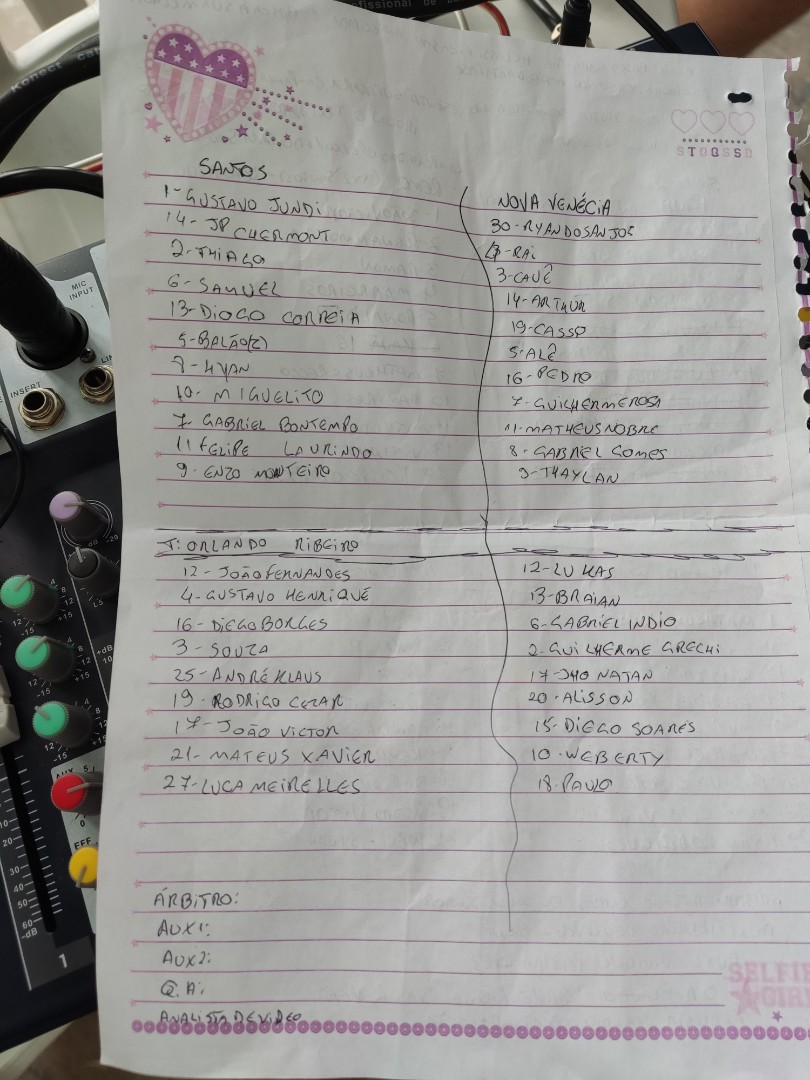 SANTOS
1-GUSTAVO JUNDI
14- JP CHERMONT
2-THIAGO
6- SAMUEL
13-DIOGO CORREIA
5-BALÃO(Z)
8-HYAN
10- MIGUELITO
7- GABRIEL BONTEMPO
11 FELIPE LAURINDO
9- ENZO MONTEIRO
T: ORLANDO RIBEIRO
12-JOÃO FERNANDES
4-GUSTAVO HENRIQUE
16-DIEGO BORGES
3-SOUZA
25-ANDRÉ KLAUS
19-RODRIGO CEZAR
17-JOÃO VICTOR
21-MATEUS XAVIER
27-LUCA MEIRELLES
NOVA VENÉCIA
30-RYAN DOS ANJOS
RAI
3-CAUÊ
14-ARTHUR
19-CASSO
5-ALÊ
16-PEDRO
7-GUILHERME ROSA
11-MATHEUS NOBRE
8-GABRIEL GOMES
9-THAYLAN
12-LUKAS
13-BRAIAN
6-GABRIEL INDIO
2-GUILHERME GRECHI
17-JHONATAN
20-ALISSON
15-DIEGO SOARES
10-WEBERTY
18-PAULO
ÁRBITRO:
AUX1:
AUX2:
Q.A:
ANALISTA DE VIDEO
SELFIE
GIRL
MIC
INPUT
INSERT
AUX
EFF
1